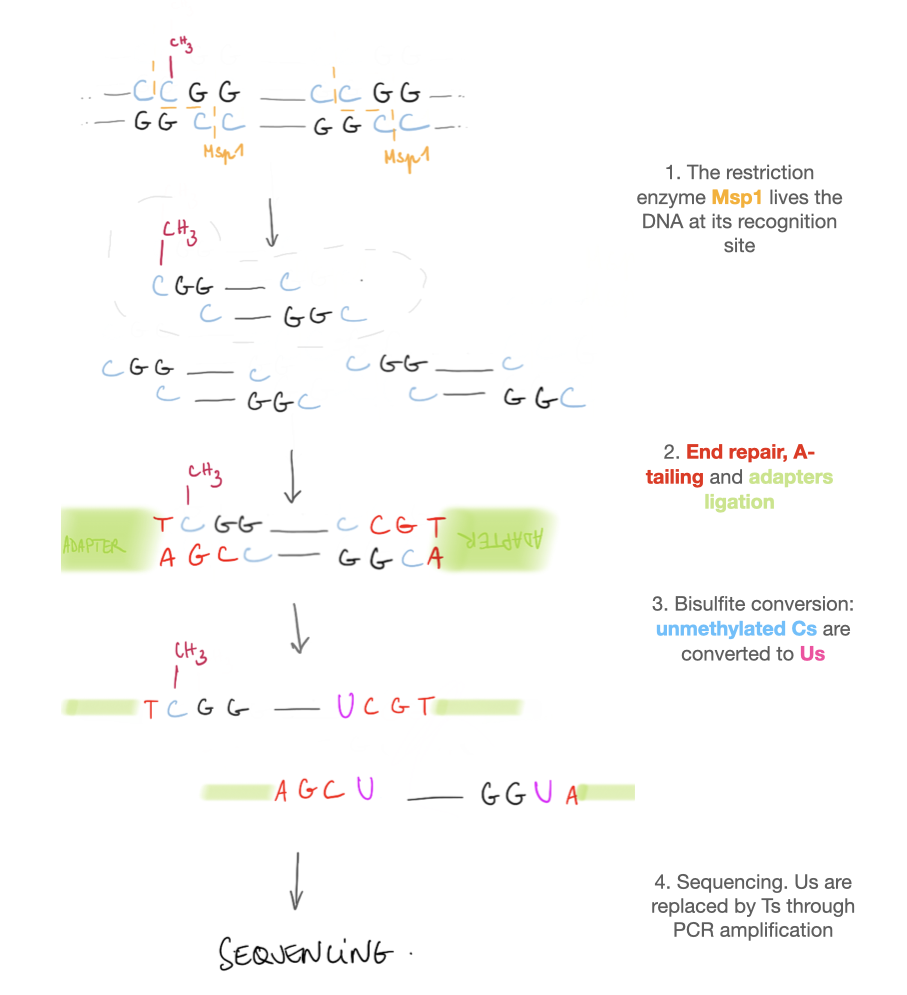 CH3
CCGG CCGG
GGCC GGCC
Msp1 Msp1
1. The restriction
enzyme Msp1 lives the
DNA at its recognition
site
CH3
CGG C
C GGC
CGG C CGG C
C GGC C GGC
2. End repair, A-
tailing and adapters
ligation
CH3
TCGG CCGT
ADAPTER AGCC GGCA ADAPTER
3. Bisulfite conversion:
unmethylated Cs are
converted to Us
CH3
TCGG UCGT
AGCU GGUA
4. Sequencing. Us are
replaced by Ts through
PCR amplification
SEQUENCING.